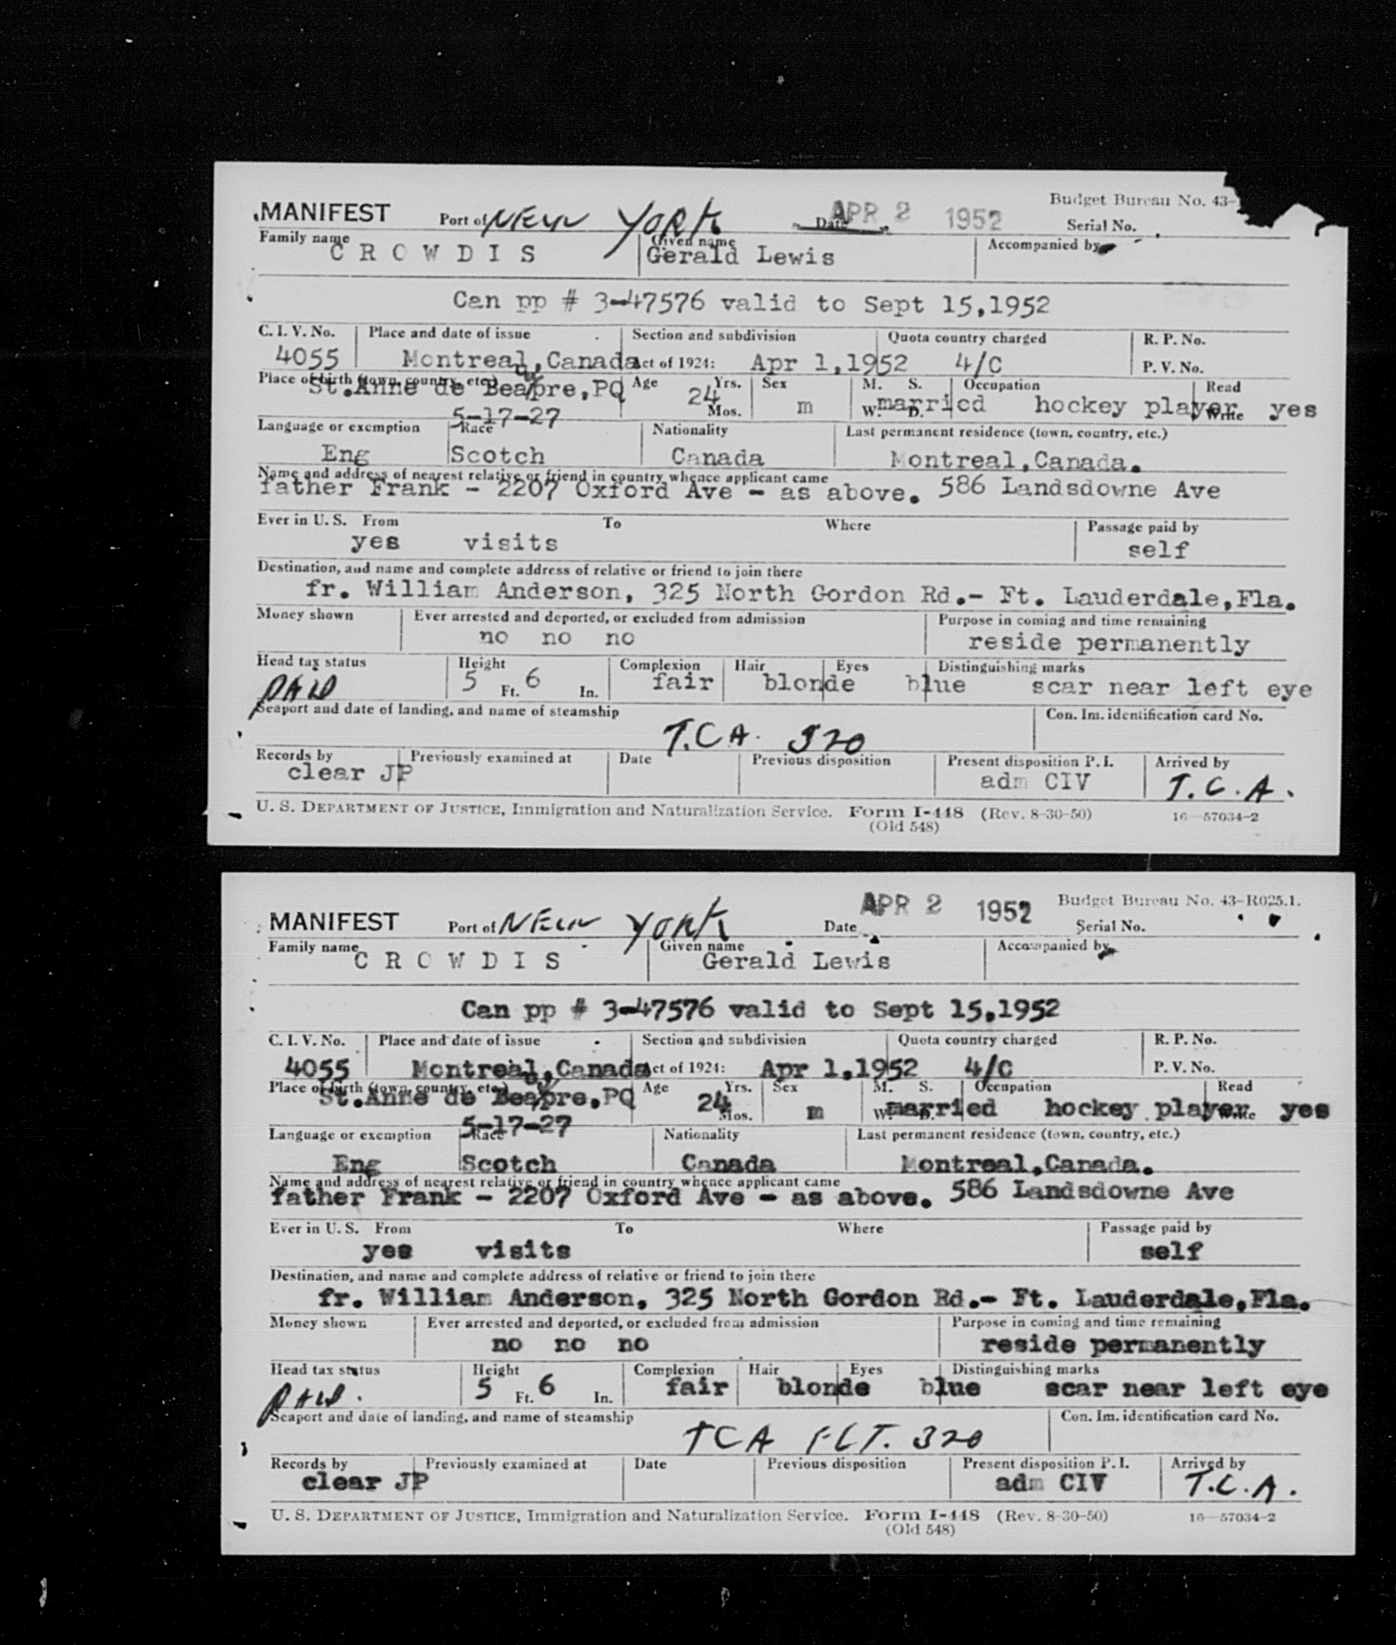 MANIFEST Port of NEW YORK Date APR 2 1952 Budget Bureau No. 43-
Serial No.
Family name CROWDIS Given name Gerald Lewis Accompanied by
Can pp # 3-47576 valid to Sept 15,1952
C. I. V. No. Place and date of issue Section and subdivision Quota country charged R. P. No.
4055 Montreal,Canada Act of 1924: Apr 1,1952 4/C P. V. No.
Place of birth (town, country, etc.) Age Yrs. Sex M. S. Occupation Read
St.Anne de Beapre,PQ 24 Mos. m W. D. married hockey player Write yes
5-17-27
Language or exemption Race Nationality Last permanent residence (town, country, etc.)
Eng Scotch Canada Montreal,Canada.
Name and address of nearest relative or friend in country whence applicant came
father Frank - 2207 Oxford Ave - as above. 586 Landsdowne Ave
Ever in U. S. From To Where Passage paid by
yes visits self
Destination, and name and complete address of relative or friend to join there
fr. William Anderson, 325 North Gordon Rd.- Ft. Lauderdale,Fla.
Money shown Ever arrested and deported, or excluded from admission Purpose in coming and time remaining
no no no reside permanently
Head tax status Height Complexion Hair Eyes Distinguishing marks
PAID 5 Ft. 6 In. fair blonde blue scar near left eye
Seaport and date of landing, and name of steamship Con. Im. identification card No.
T.C.A. 320
Records by Previously examined at Date Previous disposition Present disposition P. I. Arrived by
clear JP adm CIV T.C.A.
U. S. DEPARTMENT OF JUSTICE, Immigration and Naturalization Service. Form I-448 (Rev. 8-30-50) 16—57034-2
(Old 548)
MANIFEST Port of NEW YORK Date APR 2 1952 Budget Bureau No. 43-R025.1.
Serial No.
Family name CROWDIS Given name Gerald Lewis Accompanied by
Can pp # 3-47576 valid to Sept 15,1952
C. I. V. No. Place and date of issue Section and subdivision Quota country charged R. P. No.
4055 Montreal,Canada Act of 1924: Apr 1,1952 4/C P. V. No.
Place of birth (town, country, etc.) Age Yrs. Sex M. S. Occupation Read
St.Anne de Beapre,PQ 24 Mos. m W. D. married hockey player Write yes
5-17-27
Language or exemption Race Nationality Last permanent residence (town, country, etc.)
Eng Scotch Canada Montreal,Canada.
Name and address of nearest relative or friend in country whence applicant came
father Frank - 2207 Oxford Ave - as above. 586 Landsdowne Ave
Ever in U. S. From To Where Passage paid by
yes visits self
Destination, and name and complete address of relative or friend to join there
fr. William Anderson, 325 North Gordon Rd.- Ft. Lauderdale,Fla.
Money shown Ever arrested and deported, or excluded from admission Purpose in coming and time remaining
no no no reside permanently
Head tax status Height Complexion Hair Eyes Distinguishing marks
PAID. 5 Ft. 6 In. fair blonde blue scar near left eye
Seaport and date of landing, and name of steamship Con. Im. identification card No.
TCA FLT. 320
Records by Previously examined at Date Previous disposition Present disposition P. I. Arrived by
clear JP adm CIV T.C.A.
U. S. DEPARTMENT OF JUSTICE, Immigration and Naturalization Service. Form I-448 (Rev. 8-30-50) 16—57034-2
(Old 548)